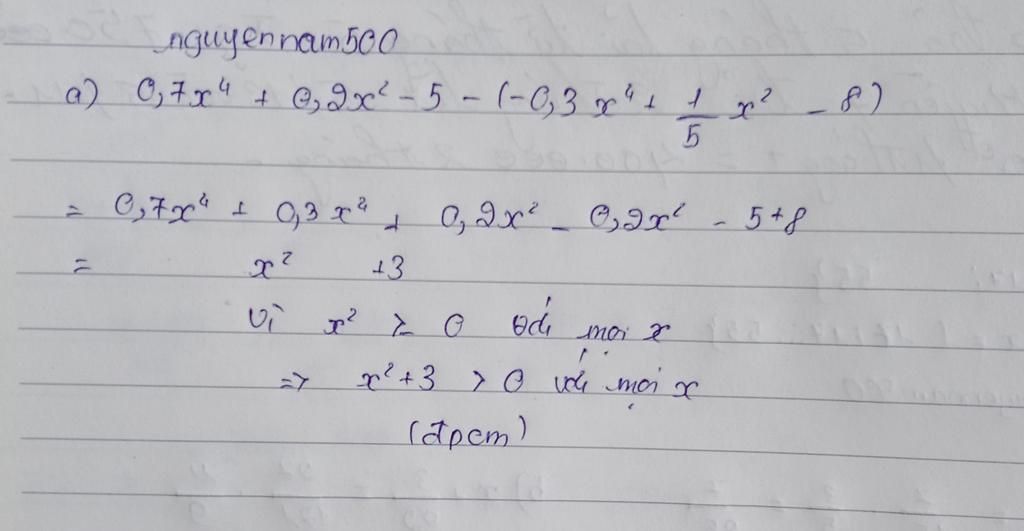 nguyennam500
a) 0,7x⁴ + 0,2x² - 5 - (-0,3x⁴ + 1/5 x² - 8)
= 0,7x⁴ + 0,3x⁴ + 0,2x² - 0,2x² - 5 + 8
= x² +3
Vì x² ≥ 0 với mọi x
=> x² + 3 > 0 với mọi x
(đpcm)